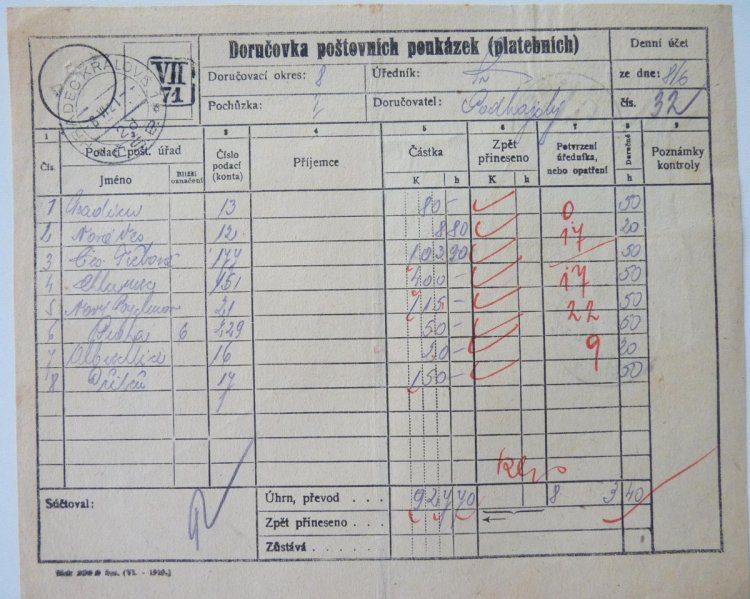 HRADEC KRÁLOVÉ 1
VII
71
Doručovka poštovních poukázek (platebních)
Denní účet
Doručovací okres: 8
Úředník:
ze dne: 8/6
Pochůzka:
Doručovatel: Podhajský
čís. 32
1 3 4 5 6 7 8 9
Čís. Podací pošt. úřad Číslo podací (konta) Příjemce Částka Zpět přineseno Potvrzení úředníka, nebo opatření Doručné Poznámky kontroly
Jméno Bližší označení K h K h h
1 13 80 - 0 50
2 Nová Ves 12 8 80 17 20
3 Čes. Třebová 177 103 90 50
4 Chlumec 151 400 - 17 50
5 Nový Bydžov 21 115 - 22 50
6 Praha 6 229 50 - 50
7 16 20 - 9 20
8 17 150 - 50
Súčtoval:
Úhrn, převod . . . . 927 70 8 3 40
Zpět přineseno . . . .
Zůstává . . . . .